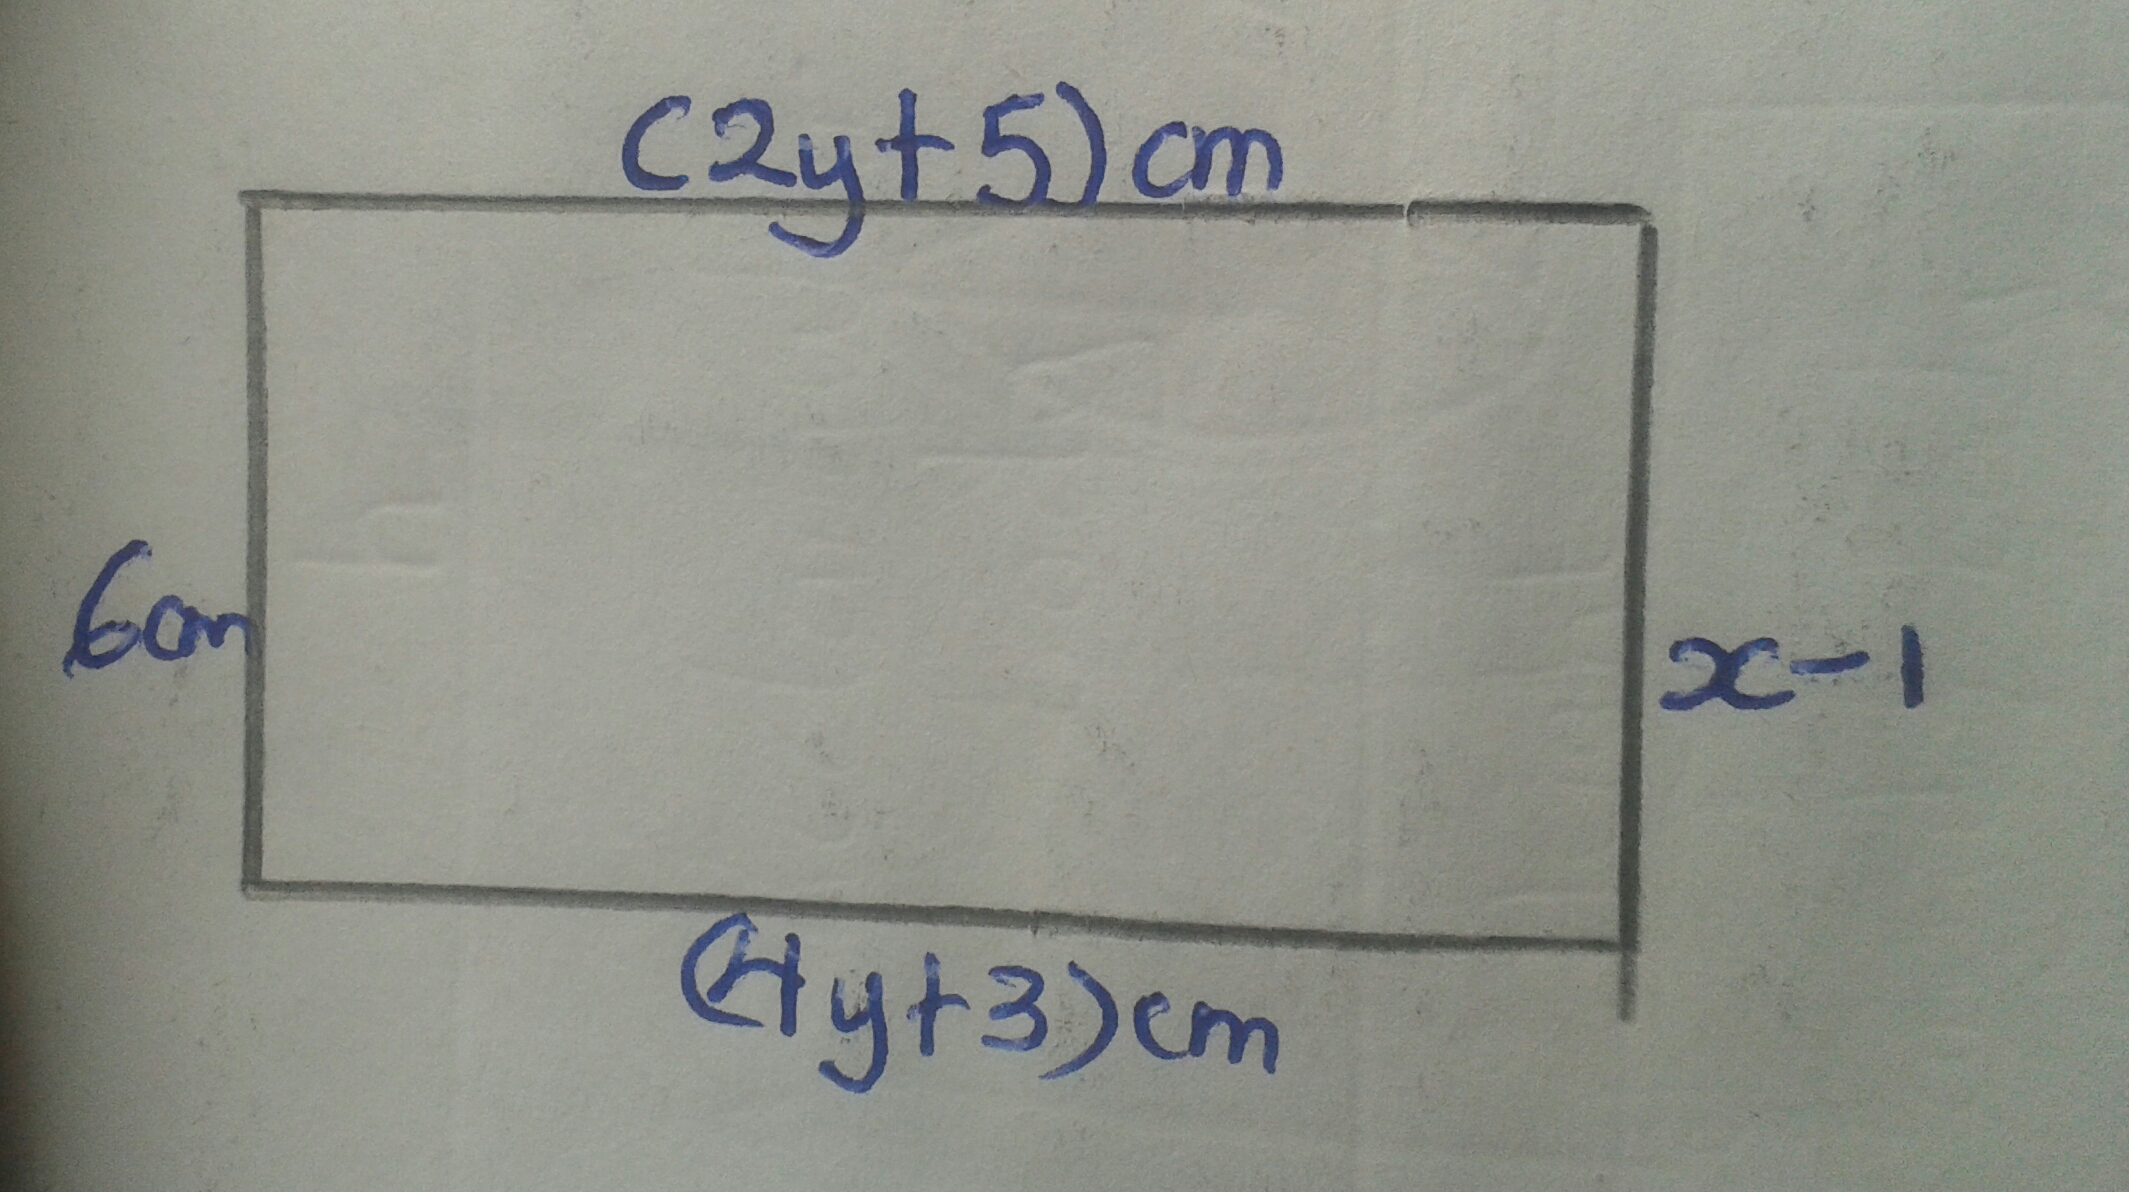 (2y+5)cm
6cm
x-1
(4y+3)cm